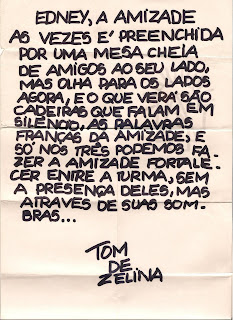 EDNEY, A AMIZADE
AS VEZES É PREENCHIDA
POR UMA MESA CHEIA
DE AMIGOS AO SEU LADO,
MAS OLHA PARA OS LADOS
AGORA, E O QUE VERÁ SÃO
CADEIRAS QUE FALAM EM
SILÊNCIO, AS PALAVRAS
FRANÇAS DA AMIZADE; E
SÓ NOS TRÊS PODEMOS FA-
ZER A AMIZADE FORTALE-
CER ENTRE A TURMA, SEM
A PRESENÇA DELES, MAS
ATRAVÉS DE SUAS SOM-
BRAS...
TOM
DE
ZELINA